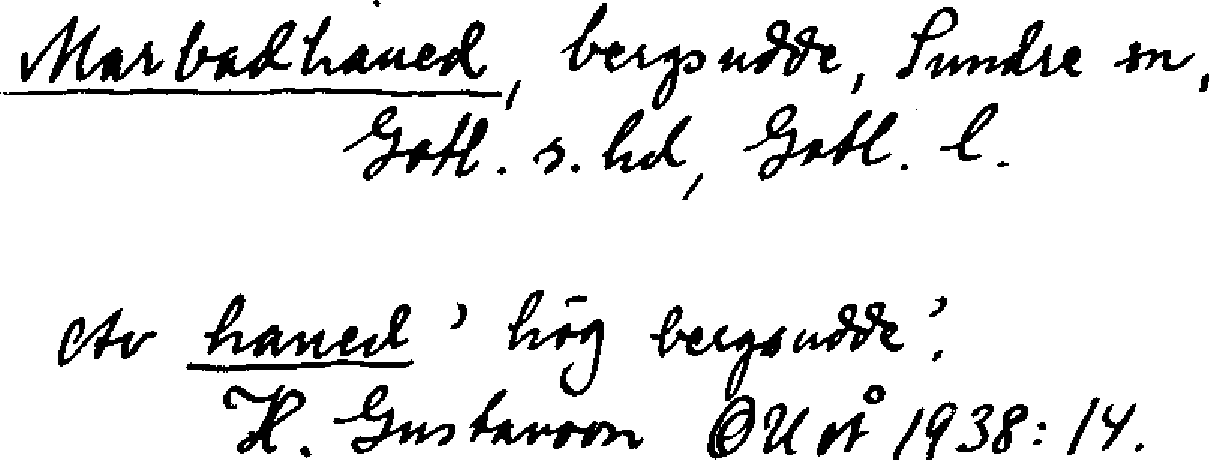 Marbadhaued, bergsudde, Sundre sn,
Gotl. s. hd, Gotl. l.
Av haued 'hög bergsudde'.
H. Gustavson OUÅ 1938:14.